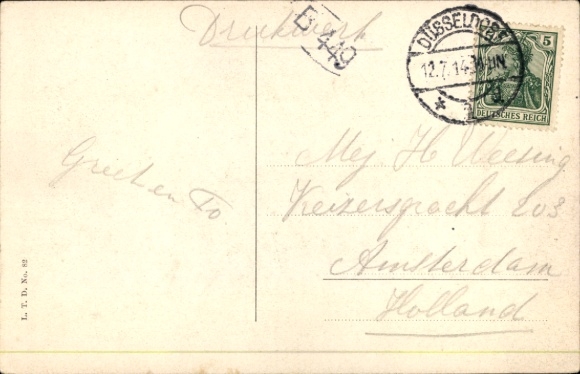 Drukwerk
B 449
DÜSSELDORF
12.7.14
* 1
5
DEUTSCHES REICH
Greet en To
Mej. H Weesing
Keizersgracht 203
Amsterdam
Holland
L. T. D. No. 82